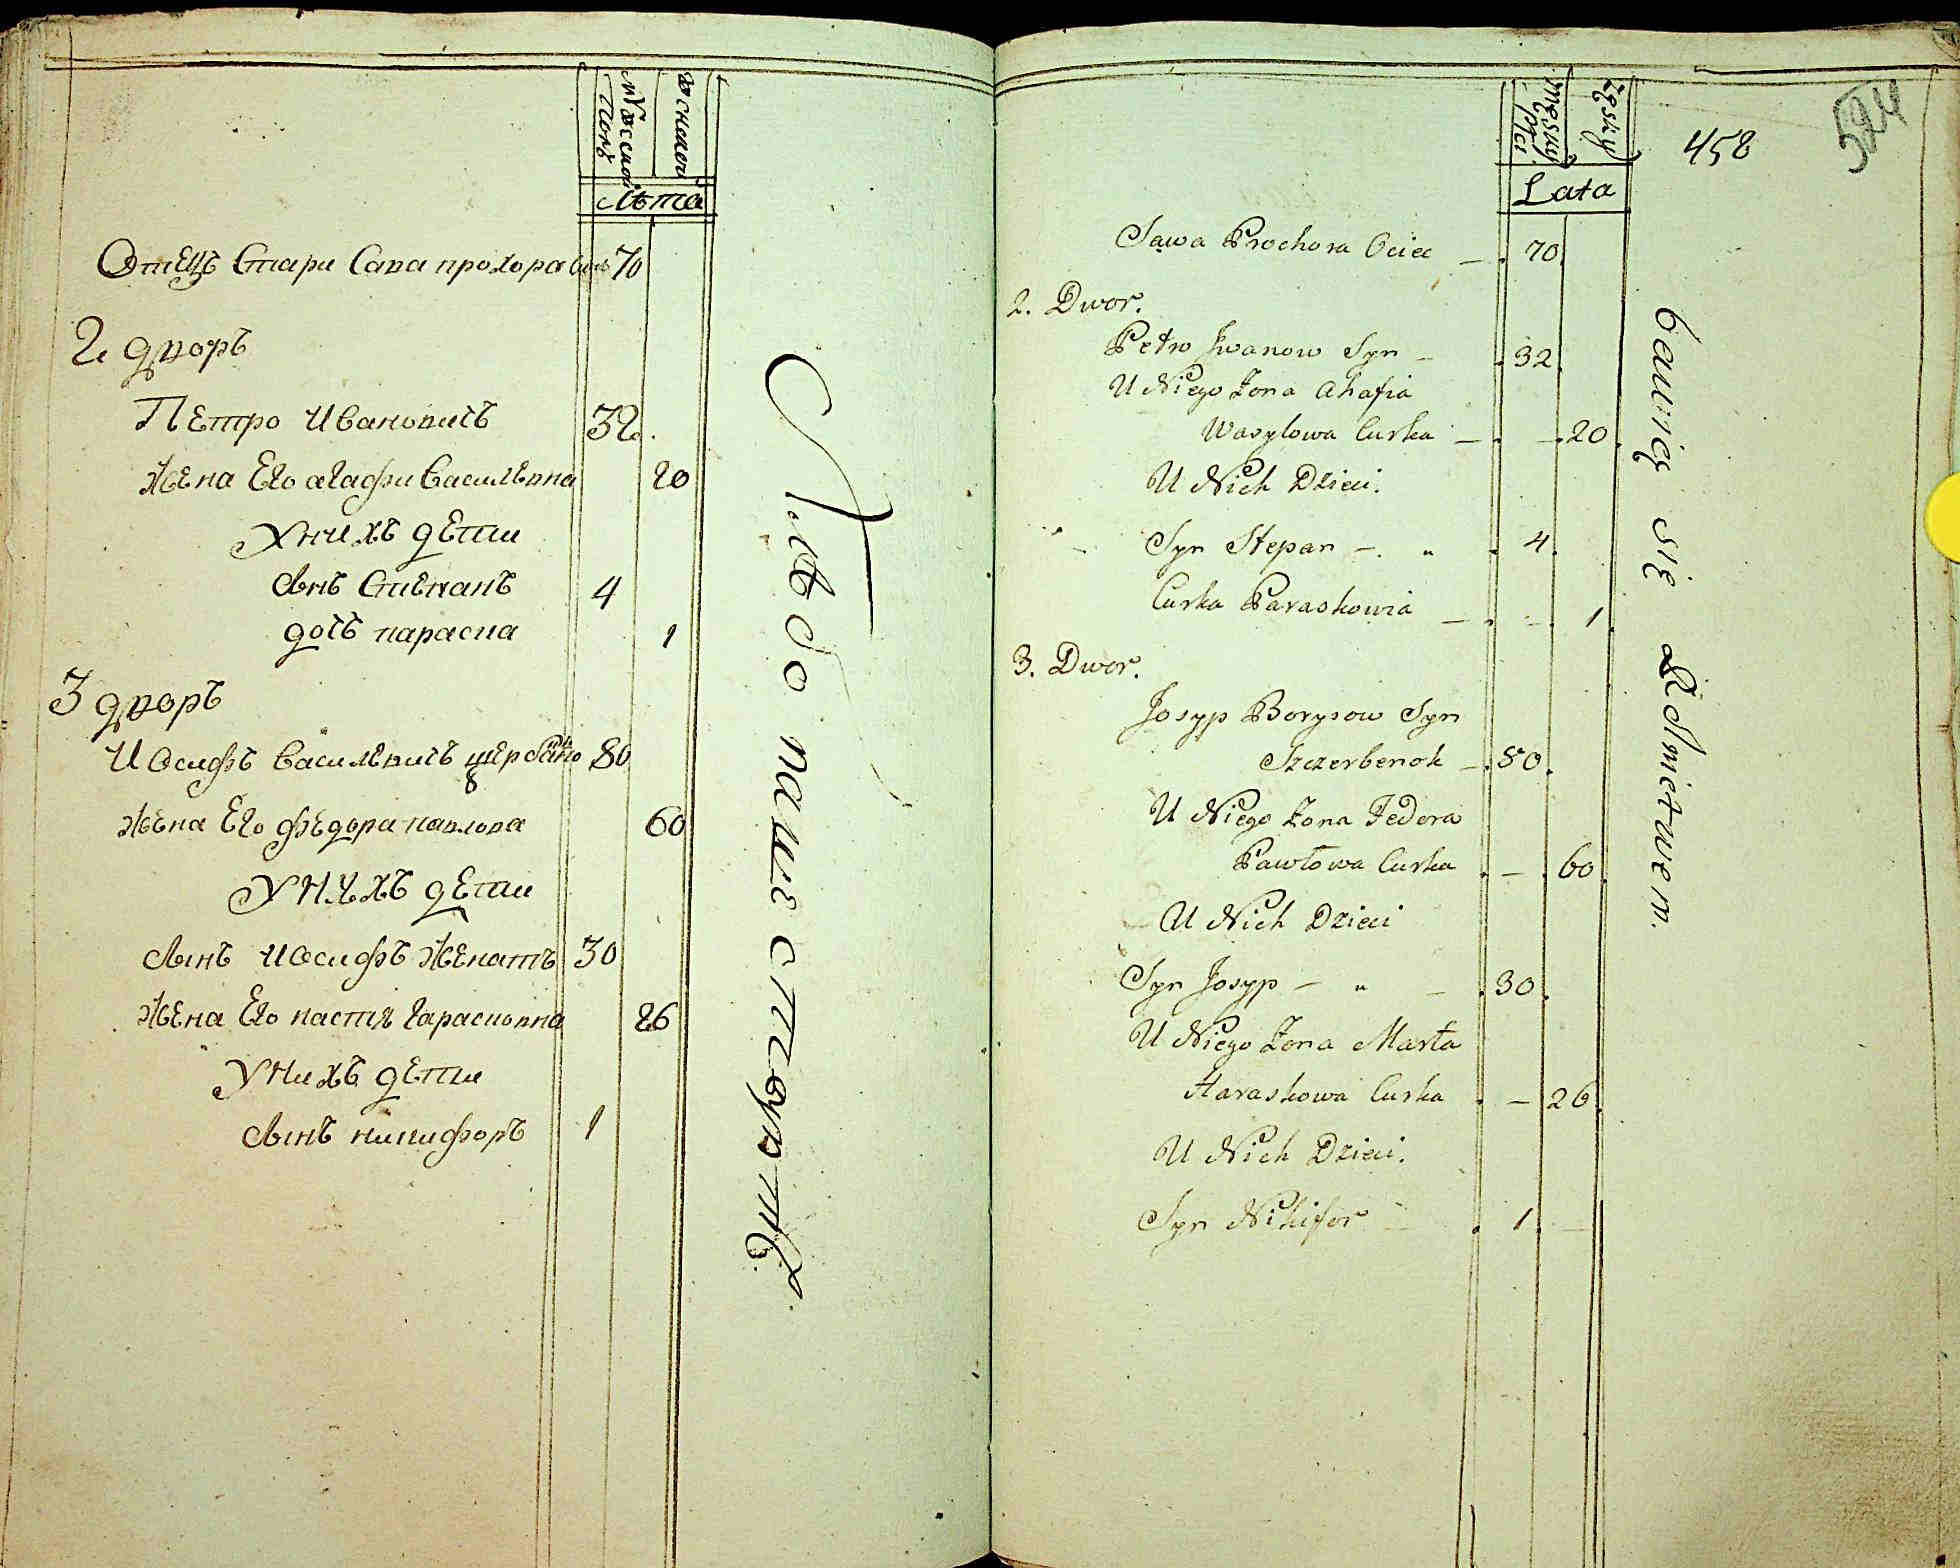 Мужеской
Полъ
женской
Лѣта
Отецъ Стари Сава прохора Синъ 70
2 дворъ
Петро Ивановичъ 32
жена Его агафи Василѣвна 20
У нихъ дѣти
Синъ Степанъ 4
дочъ параска 1
3 дворъ
Иосифъ Василѣвичъ 80
жена Его федора павлова 60
У нихъ дѣти
Синъ Иосифъ женатъ 30
жена Его настя гарасковна 26
У нихъ дѣти
Синъ никифоръ 1
Хлѣбопашествуютъ
męskiy
płci
żeskiy
Lata
458
524
Sawa Prochora Ociec — 70
2. Dwor.
Petro Jwanow Syn — 32
U Niego Zona Ahafia
Wasylowa Curka — 20
U Nich Dzieci.
Syn Stepan — 4
Curka Paraskowia — 1
3. Dwor.
Josyp Borysow Syn
Szczerbenok — 80
U Niego Zona Fedora
Pawłowa Curka — 60
U Nich Dzieci
Syn Josyp — 30
U Niego Zona Marta
Haraskowa Curka — 26
U Nich Dzieci.
Syn Nikifor 1
bawieę się Rolnictwem.